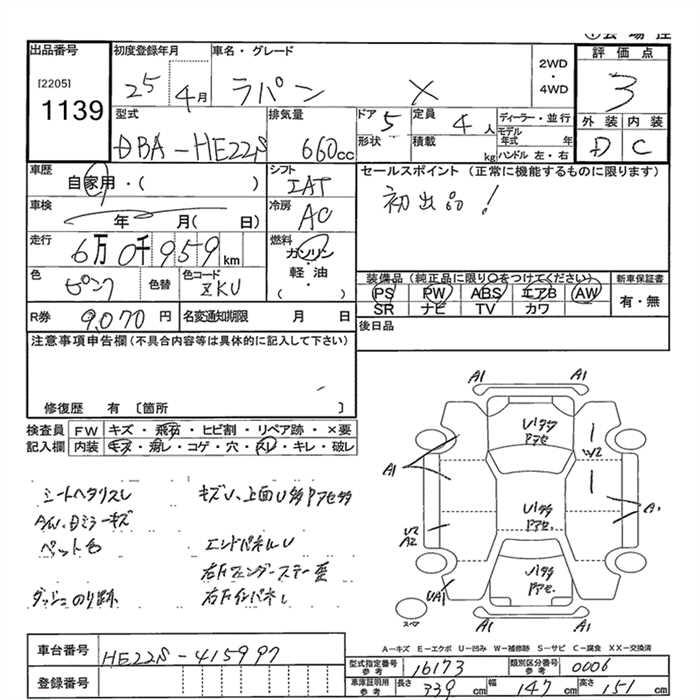 出品番号
[2205]
1139
初度登録年月
25
4月
車名・グレード
ラパン X
2WD
・
4WD
評価点
3
型式
DBA-HE22S
排気量
660cc
ドア 5
形状
定員 4人
積載 kg
ディーラー・並行
モデル年式 年
ハンドル 左・右
外装 内装
D C
車歴
自家用・( )
シフト
IAT
セールスポイント (正常に機能するものに限ります)
初出品!
車検
年 月( 日)
冷房
AC
走行
6万0千959km
燃料
ガソリン
軽油
( )
色
ピンク
色替
色コード
ZKU
装備品(純正品に限り○をつけてください)
PS PW ABS エアB AW
SR ナビ TV カワ
新車保証書
有・無
R券 9,070円
名変通知期限 月 日
後日品
注意事項申告欄(不具合内容等は具体的に記入して下さい)
修復歴 有 〔箇所 〕
検査員
記入欄
FW キズ・飛石・ヒビ割・リペア跡・×要
内装 キズ・汚レ・コゲ・穴・スレ・キレ・破レ
シートヘタリスレ
AW、Dミラーキズ
ペット毛
ダッシュのり跡
キズU、上面U多Pアセ多
エンドパネルU
右Fフェンダーステー歪
右Fインパネし
A1 A1
U1多
Pアセ
A1
W2
U1多
Pアセ.
A1
U2
A2
U1多
Pアセ.
UA1
スペア
A1 A1
A-キズ E-エクボ U-凹み W-補修跡 S-サビ C-腐食 XX-交換済
車台番号 HE22S-415997
登録番号
型式指定番号
参考
16173
類別区分番号
参考
0006
車庫証明用
参考
長さ 339cm
幅 147cm
高さ 151cm